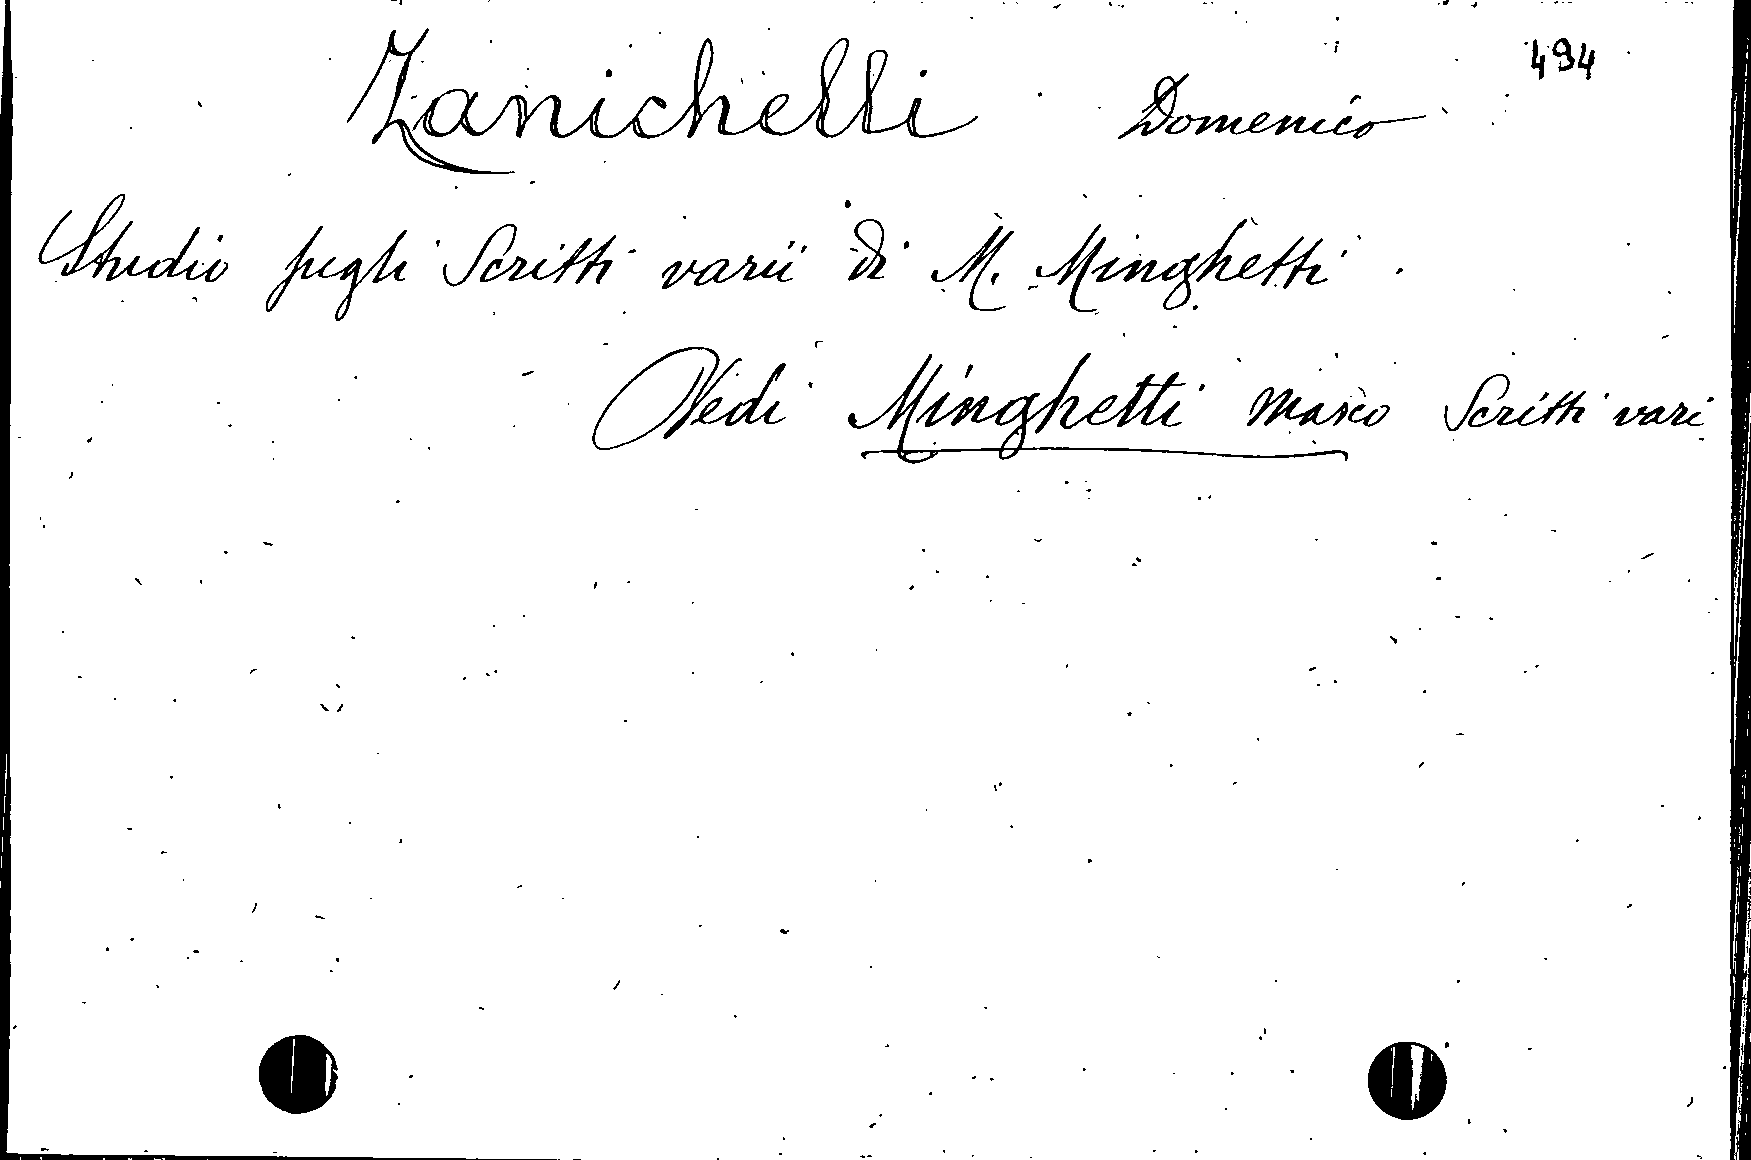 494
Zanichelli Domenico
Studio sugli Scritti varii di M. Minghetti.
Vedi Minghetti Marco Scritti vari